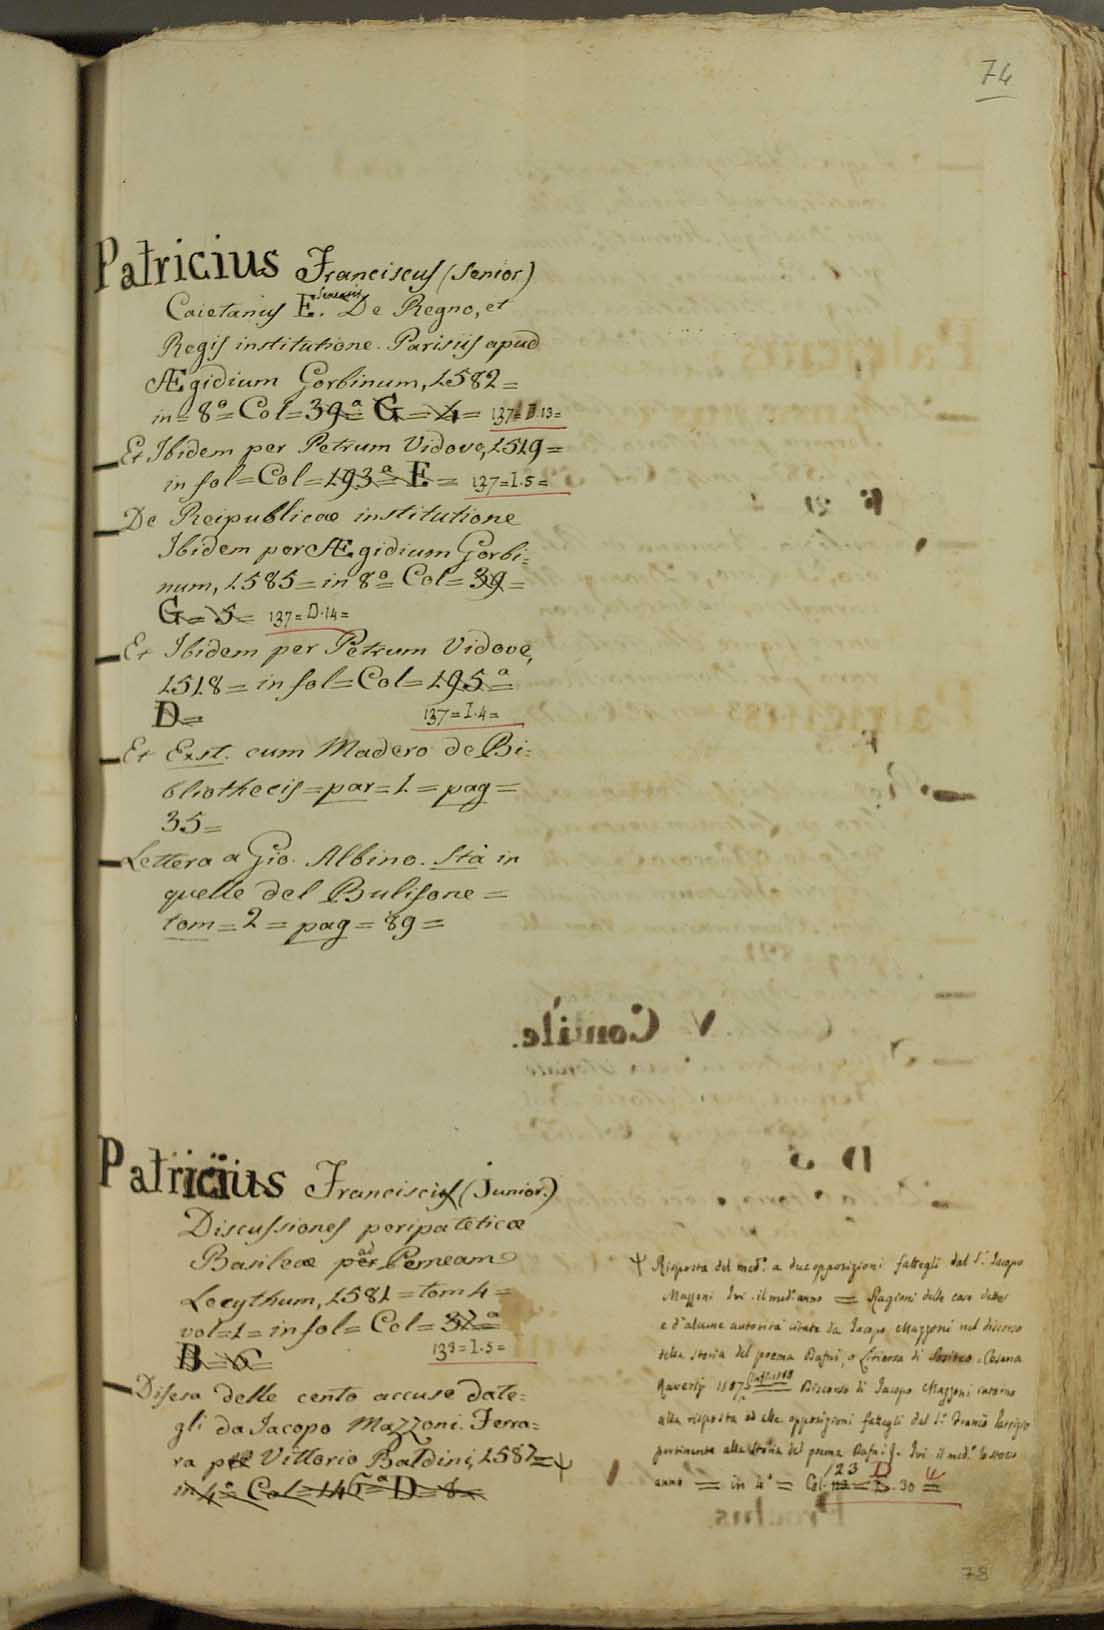 74
Patricius Franciscus (Senior)
Senensis
Caietanus E. De Regno, et
Regis institutione. Parisiis apud
Ægidium Gorbinum, 1582 =
in = 8º = Col = 39ª = G = 4 = 137 = D.13 =
Et Ibidem per Petrum Vidove, 1519 =
in fol = Col = 193ª = E = 137 = I.5 =
De Reipublicæ institutione
Ibidem per Ægidium Gorbi=
num, 1585 = in 8º = Col = 39 =
G = 5 = 137 = D.14 =
Et Ibidem per Petrum Vidove,
1518 = in fol = Col = 195ª =
D = 137 = I.4 =
Et Exst. cum Madero de Bi=
bliothecis = par = 1 = pag =
35 =
Lettera a Gio. Albino. Stà in
quelle del Bulifone =
tom = 2 = pag = 89 =
Patricius Franciscus (Junior)
Discussiones peripateticæ
Basileæ per ad Perneam
Lecythum, 1581 = tom 4 =
vol = 1 = in fol = Col = 32ª =
B = 6 = 138 = I.5 =
Difesa delle cento accuse date=
gli da Jacopo Mazzoni. Ferra=
ra per Vittorio Baldini, 1587 = Ψ
in 4º = Col = 146ª = D = 8 =
Ψ Risposta del med.º a due opposizioni fattegli dal S.r Jacopo
Mazzoni Ivi . il med.º anno = Ragioni delle cose dette
e d'alcune autorità citate da Jacopo Mazzoni nel discorso
della storia del poema Dafni, o Litiersa di Sositeo . Cesena
Raverij 1587 = Discorso di Jacopo Mazzoni intorno
alla risposta ed alle opposizioni fattegli dal S.r Franc.º Patrizio
pertinente alla Storia del poema Dafni &. Ivi il med.º
anno = in 4º = Col. 123 D 30 =
78